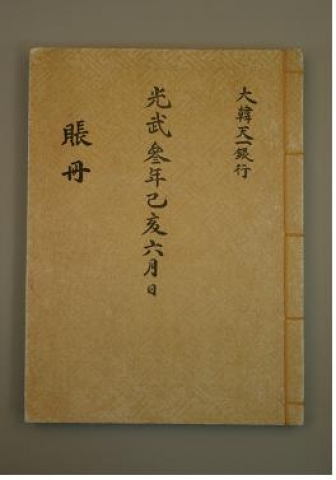 大韓天一銀行
光武叄年己亥六月日
賬冊